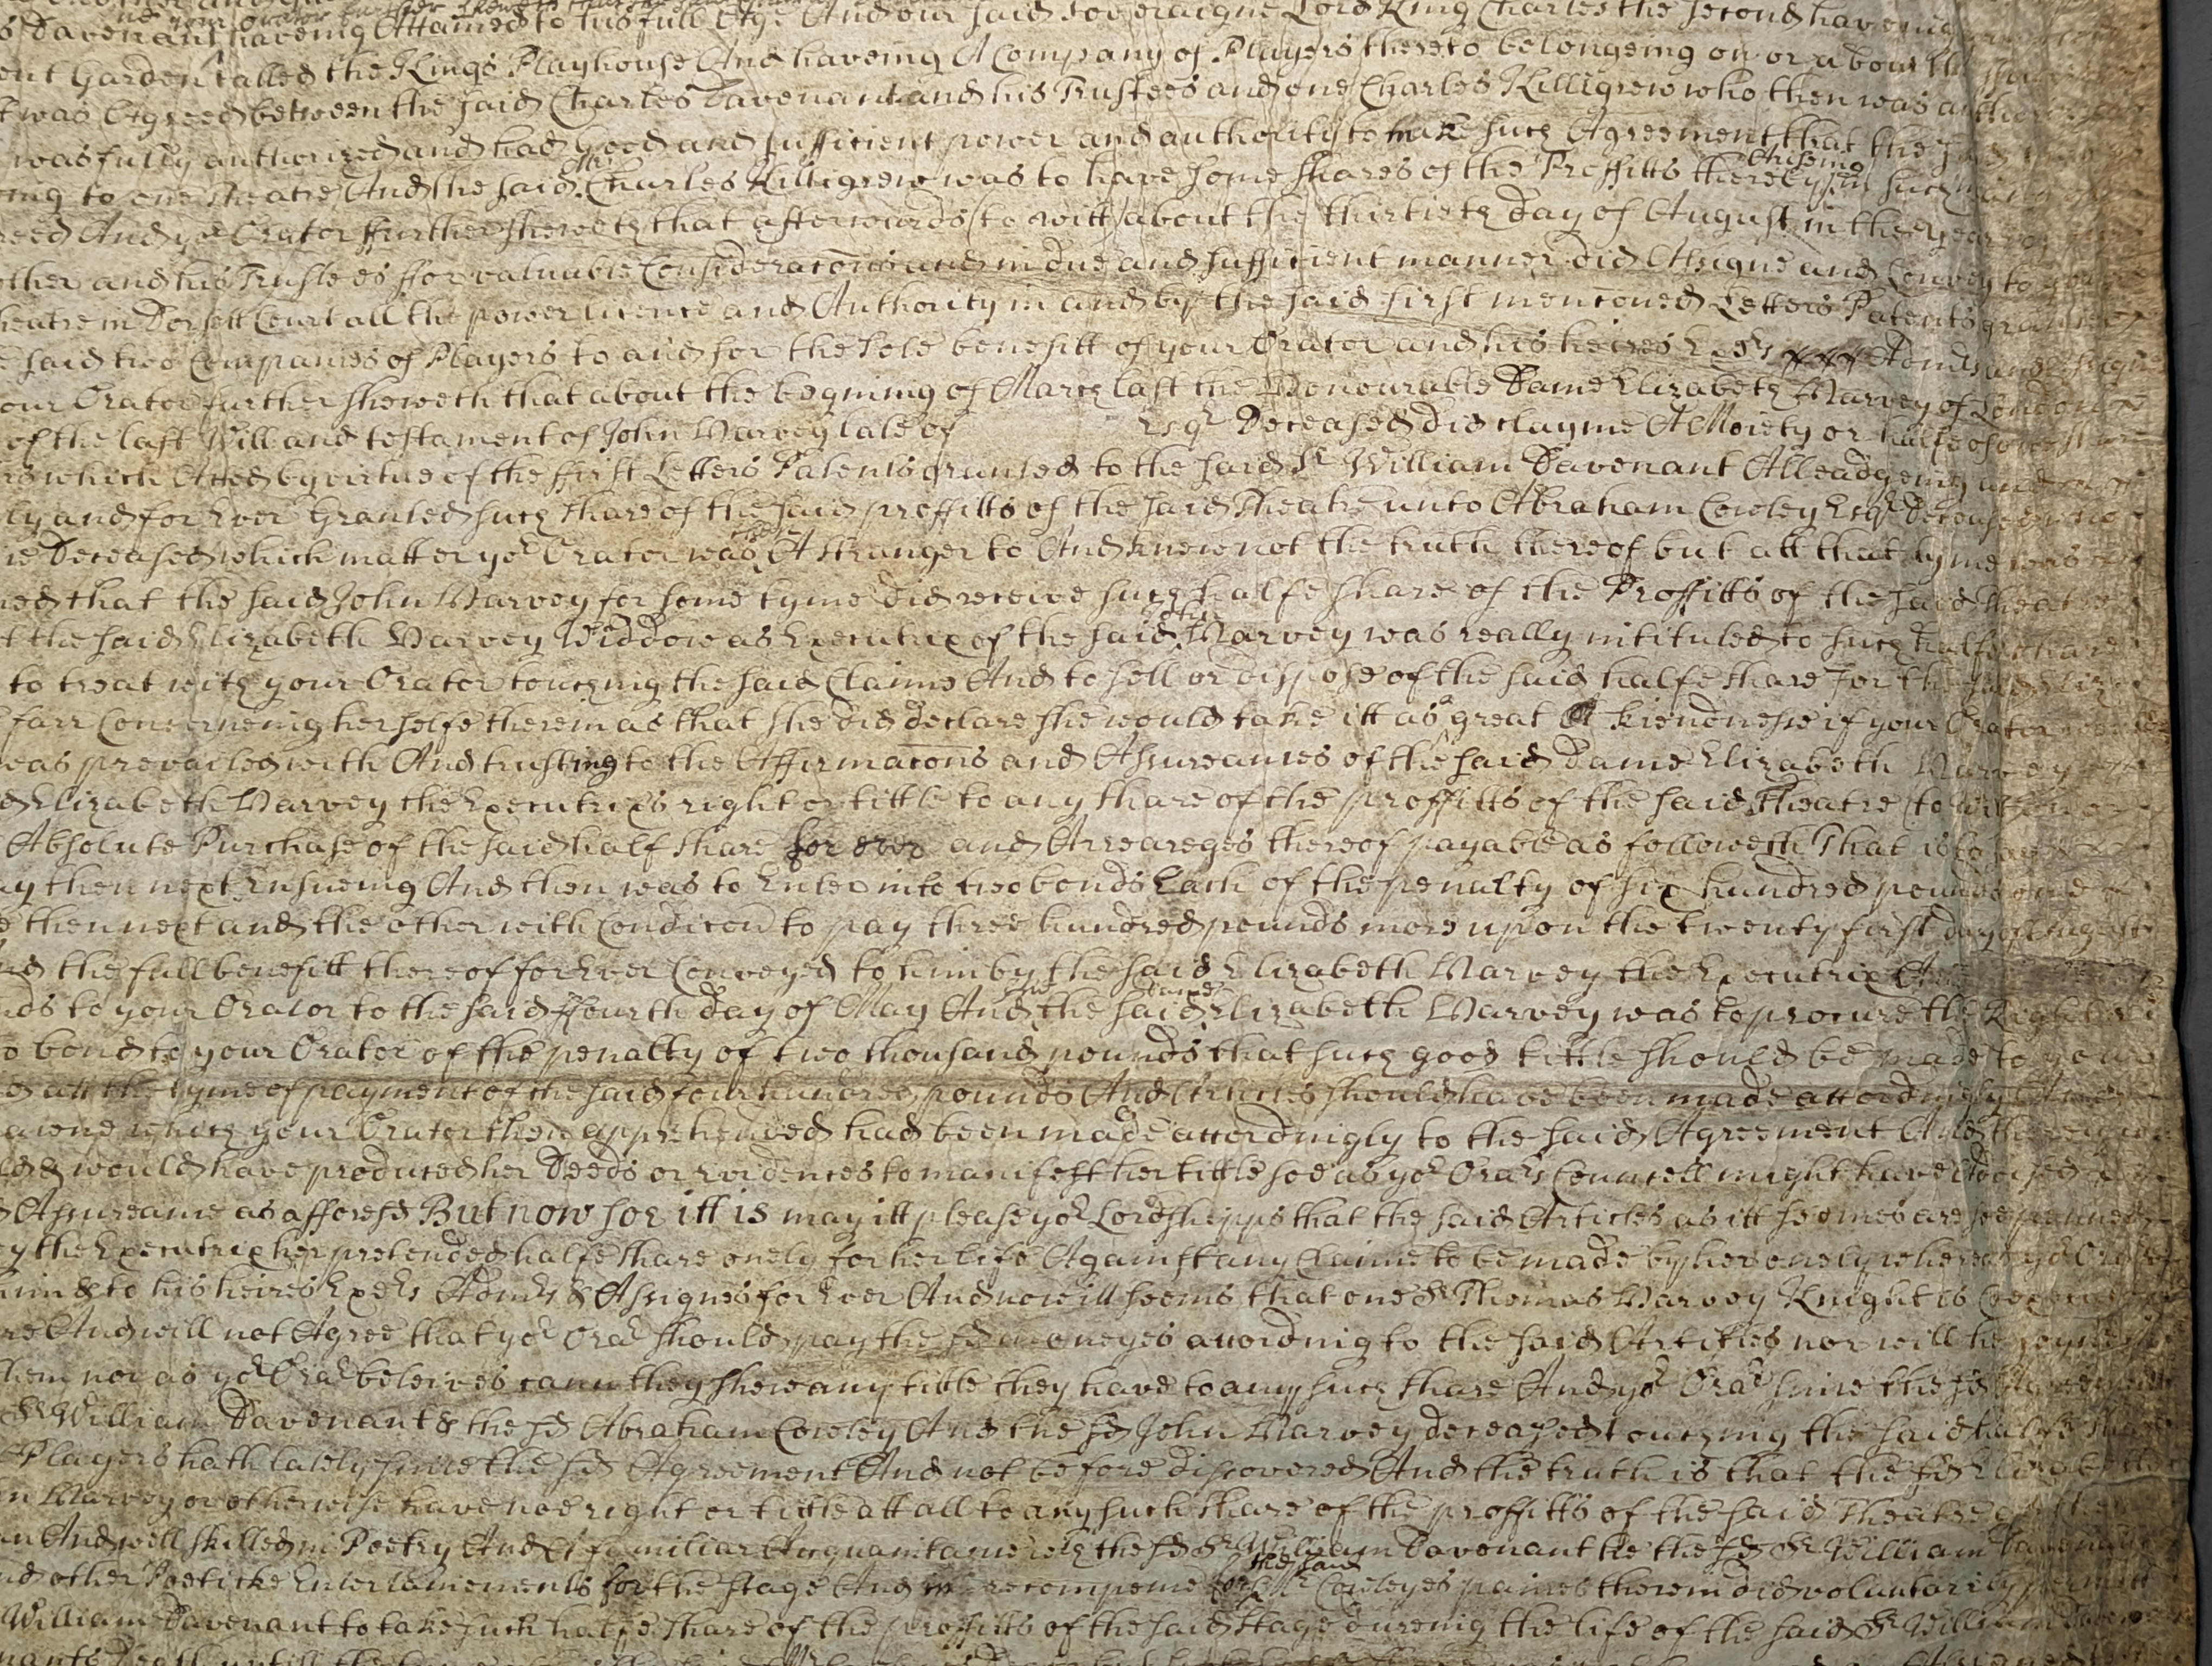 Davenant haveing Attained to his full Age And our said Soveraigne Lord King Charles the second haveing
ent Garden called the Kings Playhouse And haveing A Company of Players thereto belongeing on or about the
t was Agreed betweene the said Charles Davenant and his Trustees and one Charles Killigrew who then was
was fully authorized and had good and sufficient power and authority to make such Agreement that the
ing to one Theatre And the said Charles Killigrew was to have some shares of the Proffitts thereby ariseing in such
eed And yor Orator ffurther sheweth that afterwards (to witt) about the thirtieth day of August in the yeare
other and his Trustees ffor valuable Consideracons and in due and sufficient manner did Assigne and Convey to your
heatre in Dorsett Court all the power licence and Authority in and by the said first menconed Letters Patents granted
said two Companies of Players to and for the sole benefitt of your Orator and his heires Exrs Admrs and Assignes
our Orator further sheweth that about the begining of March last the Honourable Dame Elizabeth Harvey of London
of the last Will and testament of John Harvey late of Esqr Deceased did clayme A Moiety or halfe of one share
rs which Acted by virtue of the ffirst Letters Patents granted to the said Sr William Davenant Alleadgeing
ly and for Ever Granted such share of the said proffitts of the said Theatre unto Abraham Cowley Esqr Deceased
ie Deceased which matter yor Orator was A stranger to And knew not the truth thereof but att that tyme was
ed that the said John Harvey for some tyme did receive such halfe share of the Proffitts of the said Theatre
t the said Elizabeth Harvey Widdow as Executrix of the said John Harvey was really intituled to such halfe share
to treat with your Orator touching the said Claime And to sell or dispose of the said halfe share for the said
farr Concerneing her selfe therein as that she did declare she would take itt as a great kiendnesse if your Orator
was prevailed with And trusting to the Affirmacons and Assureances of the said Dame Elizabeth Harvey
d Elizabeth Harvey the Executrixs right or tittle to any share of the proffitts of the said Theatre (to witt)
Absolute Purchase of the said half share for ever and Arreareges thereof payable as followeth That is to say
ay then next Ensueing And then was to Enter into two bonds Each of the penalty of six hundred pounds
e then next and the other with Condicon to pay three hundred pounds more upon the twenty first day of August
nd the full benefitt thereof for Ever Conveyed to him by the said Elizabeth Harvey the Executrix
nds to your Orator to the said ffourth day of May And the said Dame Elizabeth Harvey was to procure the
o bond to your Orator of the penalty of two thousand pounds that such good tittle should be made to your
d att the tyme of payment of the said four hundred pounds And Articles should have been made accordingly
which your Orator then apprehended had been made accordingly to the said Agreement And
ld & would have produced her Deeds or Evidences to manifest her tittle soe as yor Orars Councell might have
Assureance as afforesd But now soe itt is may itt please yor Lordshipps that the said Articles as itt seemes are soe penned
y the Executrix her pretended halfe share onely for her life Against any Claime to be made by her onely whereas yor Orator
him & to his heires Exers Admrs & Assignes for Ever And now itt seems that one Sr Thomas Harvey Knight is
re And will not Agree that yor Orar should pay the sd moneyes according to the said Articles nor will he
them nor as yor Orar beleives cann they shew any tittle they have to any such share And yor Orar since the sd Agreement
Sr William Davenant & the sd Abraham Cowley And the sd John Harvey deceased touching the said halfe share
Players hath lately since the sd Agreement And not before discovered And the truth is that the sd Elizabeth
n Harvey or otherwise have noe right or tittle att all to any such share of the proffitts of the said Theatre
an And well skilled in Poetry And of familiar Acquaintance with the sd Sr William Davenant he the sd Sr William Davenant
nd other Poeticke Entertainements for the stage And in recompence for the said Mr Cowleyes paines therein did voluntarily permitt
William Davenant to take such halfe share of the proffitts of the said stage dureing the life of the said Sr William